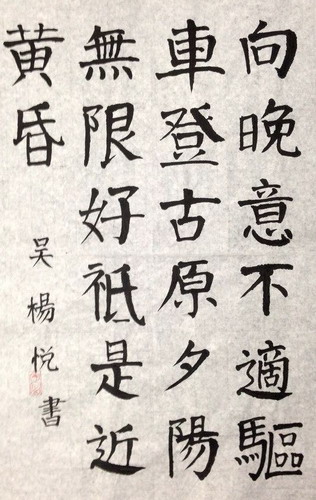 向晚意不適驅
車登古原夕陽
無限好祗是近
黄昏
吴楊悦書